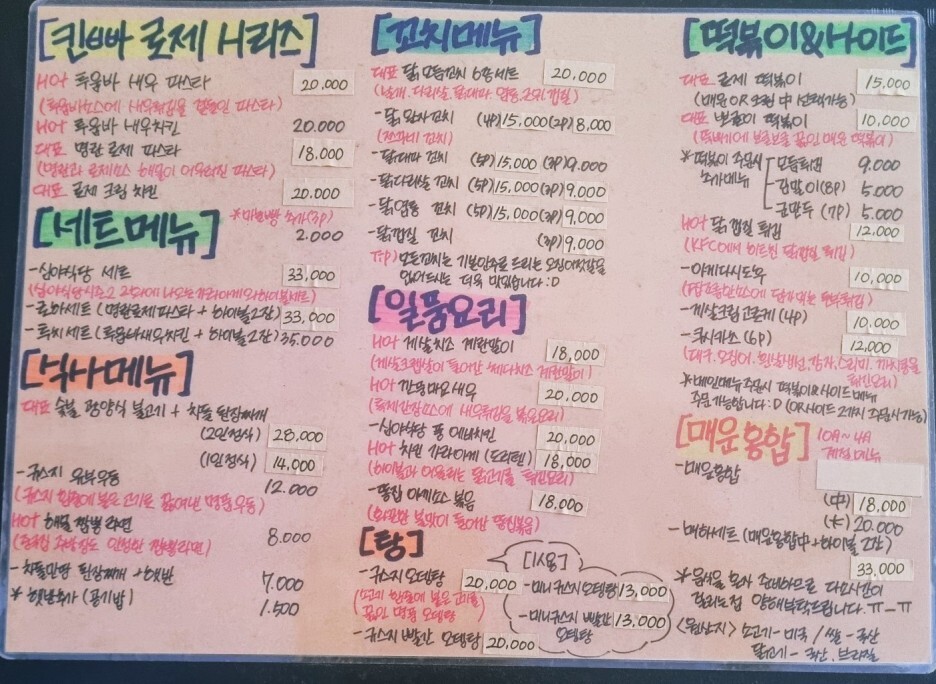 [킨빠 로제 시리즈]
HOT 투움바 새우 파스타 20,000
(투움바소스에 새우튀김을 곁들인 파스타)
HOT 투움바 새우치킨 20.000
대표 명란 로제 파스타 18,000
(명란과 로제소스 해물이 어우러진 파스타)
대표 로제 크림 치킨 20.000
[세트메뉴]
추가(3p)
2.000
-심야식당 세트 33,000
(심야식당시즌2 2화에 나오는 가라아게와하이볼세트)
세트 (명란로제파스타 + 하이볼2잔) 33,000
세트 (투움바새우치킨 + 하이볼2잔) 35.000
[식사메뉴]
대표 숯불 광양식 불고기 + 차돌 된장찌개
(2인정식) 28,000
(1인정식) 14,000
-규스지 유부우동 12.000
HOT 해물 짬뽕 라면 8.000
-차돌 된장찌개 + 햇반 7.000
* 햇반추가 (공기밥) 1.500
[꼬치메뉴]
대표 닭 모둠꼬치 6종세트 20,000
(날개. 다리살. 닭대파. 염통. 근위. 껍질)
-닭 완자 꼬치 (4P)15,000 (2P)8,000
(쯔꾸네 꼬치)
-닭대파 꼬치 (5P)15,000 (3P)9.000
-닭다리살 꼬치 (5P)15,000 (3P)9,000
-닭염통 꼬치 (5P)15,000 (3P)9,000
-닭껍질 꼬치 (3P)9,000
Tip) 모든꼬치는 기본안주로 드리는 오징어젓갈을
얹어드시는 더욱 맛있습니다 :D
[일품요리]
HOT 게살치즈 계란말이 18,000
(게살크랩살이 들어간 체다치즈 계란말이)
HOT 깐풍마요새우 20.000
(흑제간장소스에 새우튀김을 볶은요리)
-심야식당 풍 에비치킨 20,000
HOT 치킨 가라아게 (도리텐) 18,000
(하이볼과 어울리는 닭고기를 튀긴요리)
-똥집 야끼소스 볶음 18.000
(화끈한 불맛이 들어간 똥집볶음)
[탕]
-규스지 오뎅탕 20,000
-규스지 빨간 오뎅탕 20,000
[1人용]
-미니규스지 오뎅탕 13,000
-미니규스지 빨간 13,000
오뎅탕
[떡볶이&사이드]
대표 로제 떡볶이 15,000
(매운 OR 크림 中 선택가능)
대표 뽀글이 떡볶이 10,000
(뚝배기에 보글보글 끓인 매운 떡볶이)
*떡볶이 주문시
추가메뉴
모둠튀김 9.000
김말이(8P) 5.000
군만두 (7P) 5.000
HOT 닭 껍질 튀김 12,000
(KFC에서 히트친 닭껍질 튀김)
-아게다시도후 10,000
-게살크림고로케 (4P) 10,000
-쿠시카츠 (6P) 12,000
*메인메뉴주문시 떡볶이&사이드메뉴
주문가능합니다 :D (OR사이드 2가지 주문시가능)
[매운홍합]
10月~4月
계절메뉴
-매운홍합
(中) 18,000
(大) 20.000
세트 (매운홍합中+하이볼 2잔)
33,000
*음식을 모자 준비하므로 다소시간이
걸리는점 양해부탁드립니다. ㅠ_ㅠ
<원산지> 소고기-미국 / 쌀-국산
닭고기- 국산. 브라질